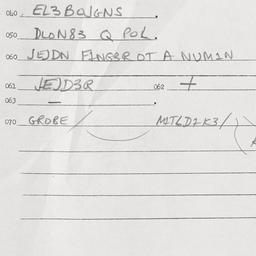 040. EL3BOJGNS .
050 DLON83 Q POL.
060 JEJDN FINGSR OT A NUMIN
061 JEJD3R 062 +
063 —
070 GROBE / MITLD2K3/